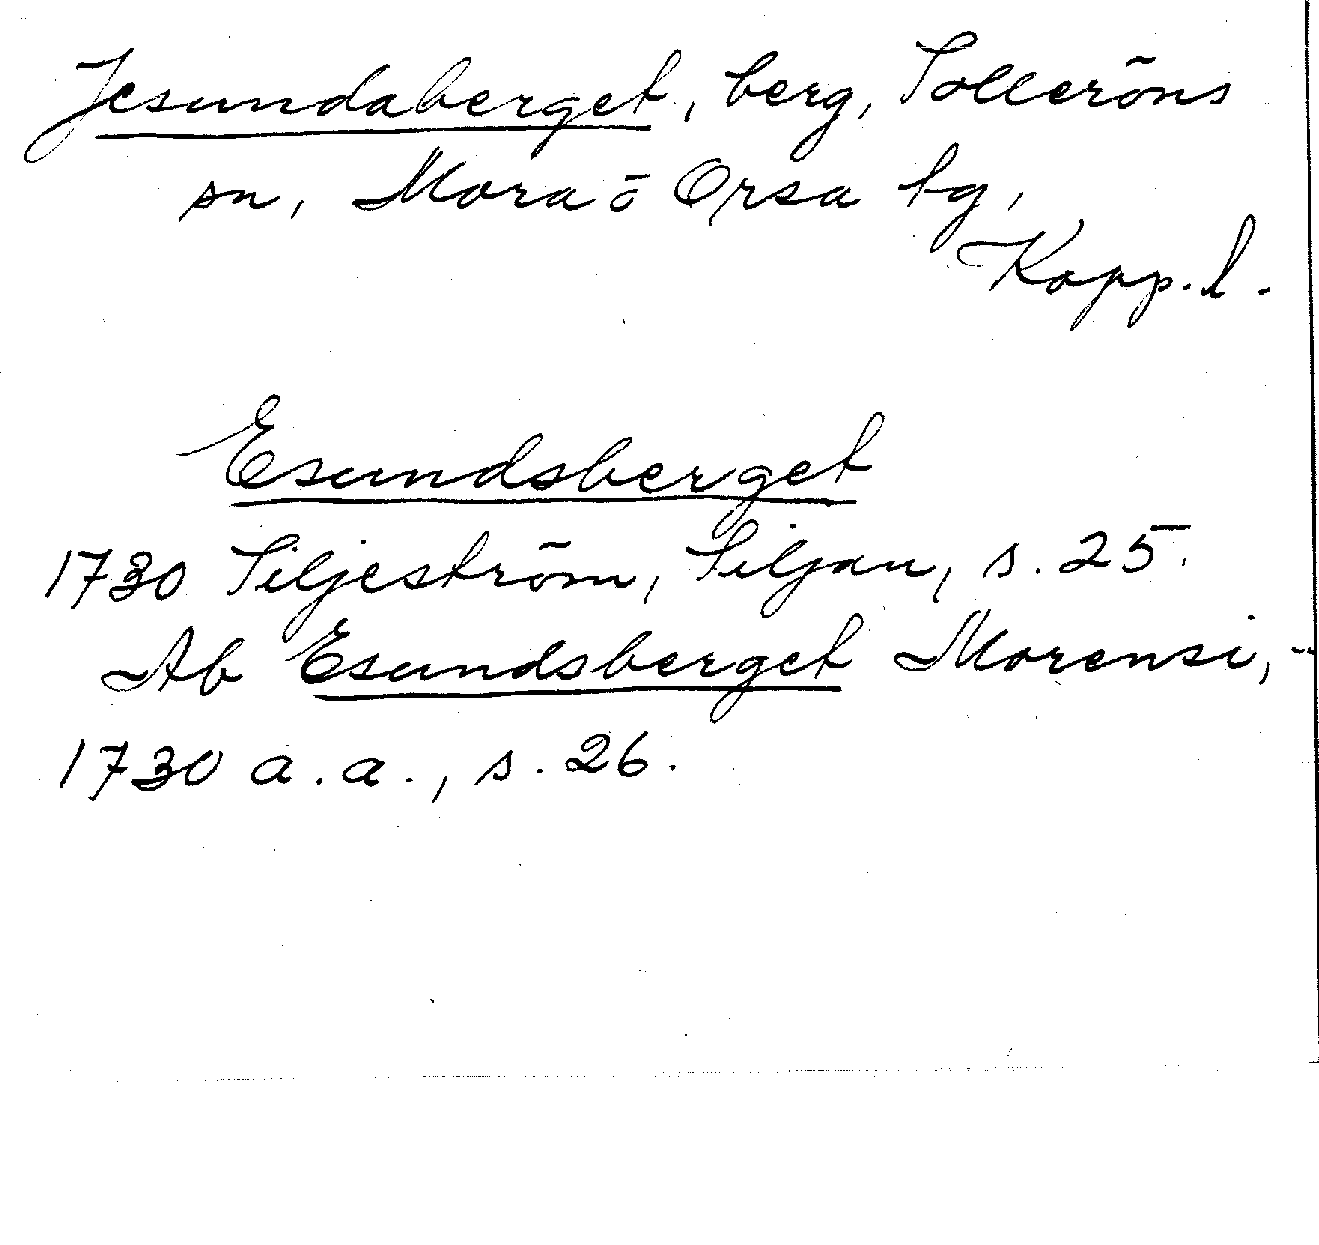 Jesundaberget, berg, Solleröns
sn, Mora o Orsa bg,
Kopp. l.
Esundsberget
1730 Siljeström, Siljan, s. 25.
Ab Esundsberget Morensi, --
1730 a. a., s. 26.